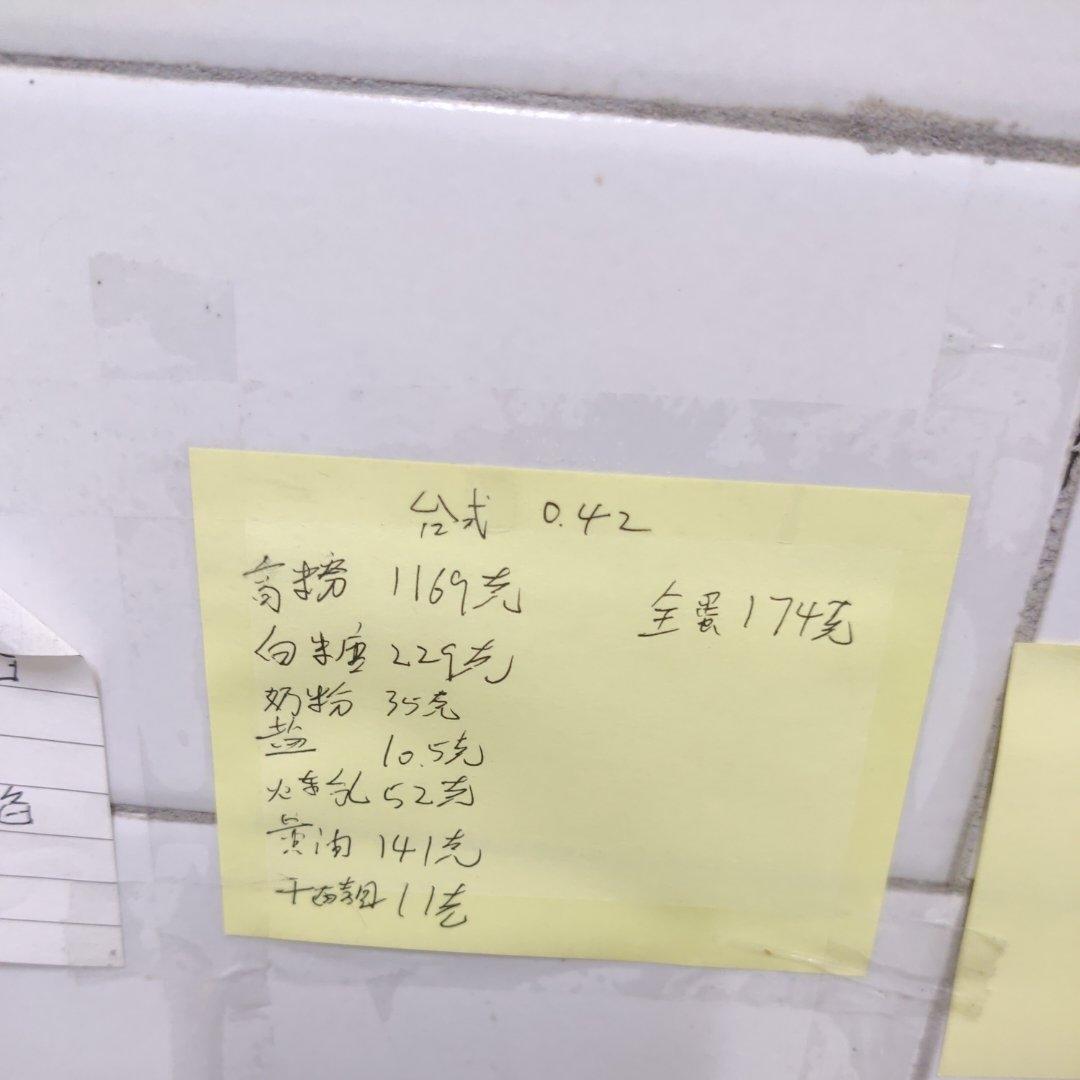 台式 0.42
高粉 1169克
全蛋 174克
白糖 229克
奶粉 35克
盐 10.5克
炼乳 52克
黄油 141克
干面 11克